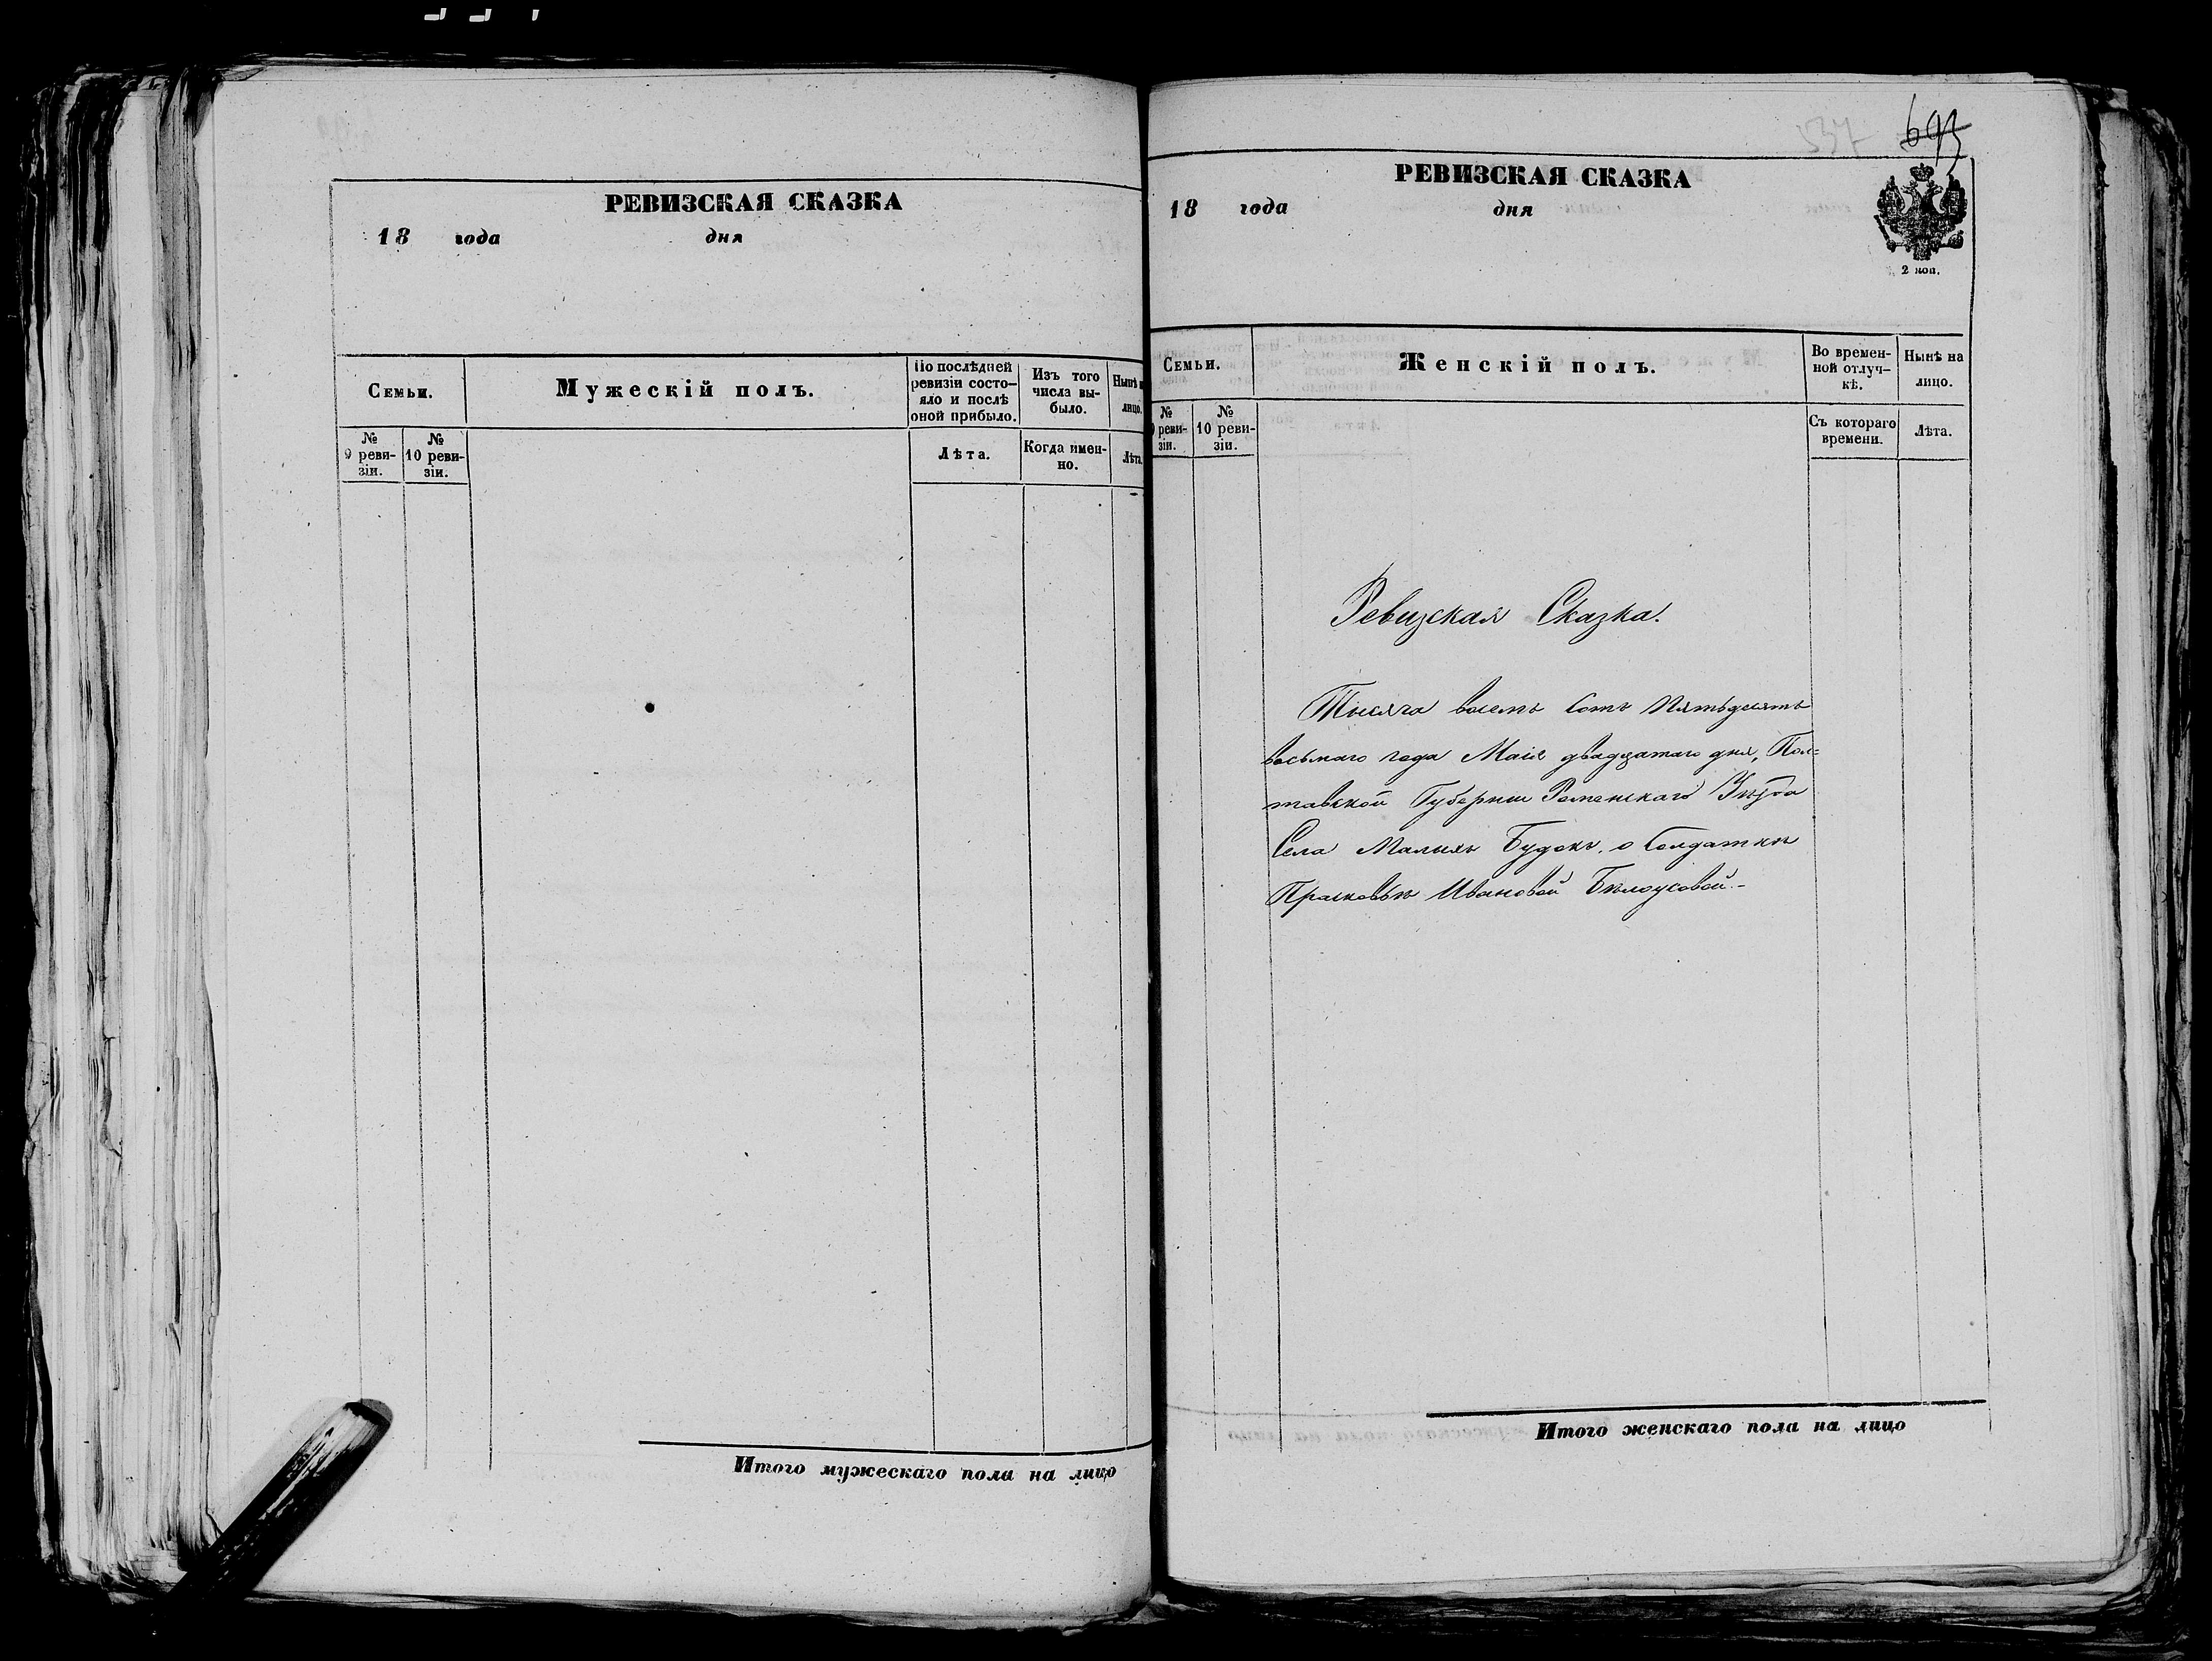 РЕВИЗСКАЯ СКАЗКА
18 года дня
Семьи.
Мужескій полъ.
По послѣдней
ревизіи состо-
яло и послѣ
оной прибыло.
Изъ того
числа вы-
было.
Нынѣ
лицо.
№
9 реви-
зіи.
№
10 реви-
зіи.
Лѣта.
Когда имен-
но.
Лѣта.
Итого мужескаго пола на лицо
537
693
РЕВИЗСКАЯ СКАЗКА
18 года дня
2 коп.
Семьи.
Женскій полъ.
Во времен-
ной отлуч-
кѣ.
Нынѣ на
лицо.
№
реви-
зіи.
№
10 реви-
зіи.
Съ котораго
времени.
Лѣта.
Ревизская Сказка.
Тысяча восемь сотъ Пятьдесятъ
восьмаго года Маія двадцатаго дня, Пол=
тавской Губерніи Роменскаго Уѣзда
Села Малыхъ Будокъ, о Солдаткѣ
Прасковьѣ Ивановой Бѣлоусовой.-
Итого женскаго пола на лицо